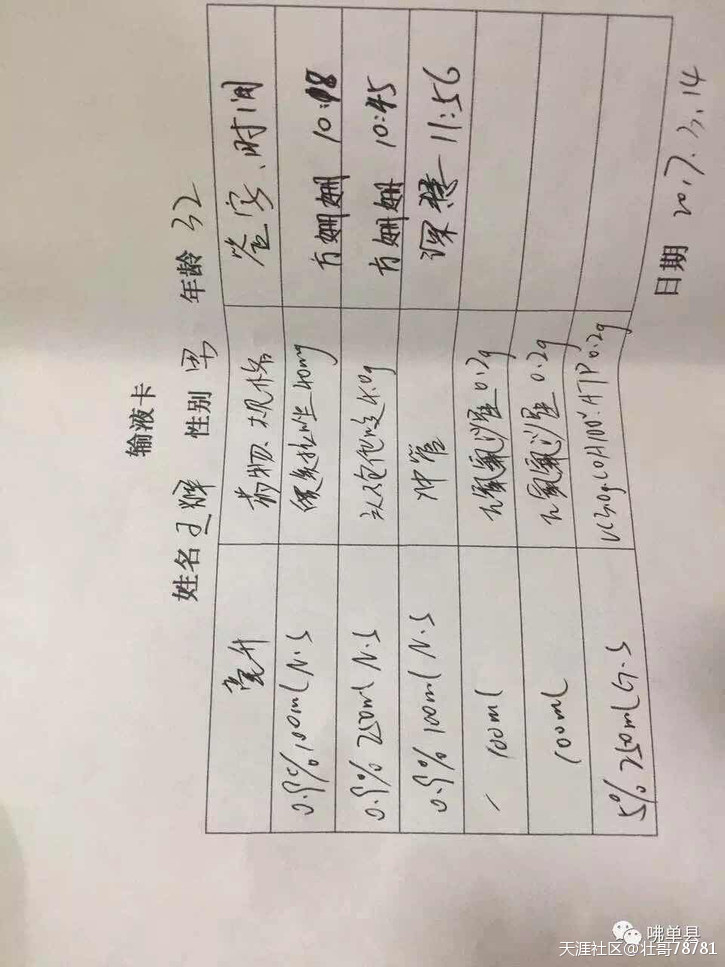 输液卡
姓名 王辉 性别 男 年龄 32
毫升 药物、规格 签字、时间
0.9% 100ml N.S 泮托拉唑 40mg 方姗姗 10:18
0.9% 250ml N.S 头孢他啶 4.0g 方姗姗 10:45
0.9% 100ml N.S 冲管 11:56
100ml 左氧氟沙星 0.2g
100ml 左氧氟沙星 0.2g
5% 250ml G.S VC3.0g.COA100u.ATP0.2g
日期 2017.3.14
咈单县
天涯社区@壮哥78781